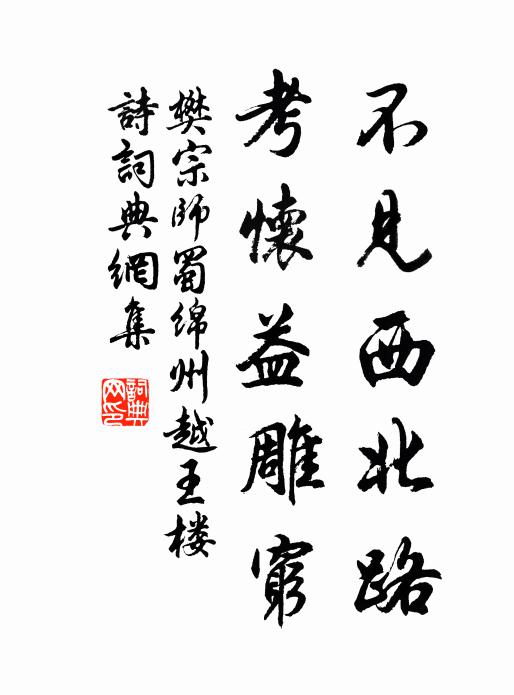 不見西北路
考懷益雕窮
樊宗師蜀绵州越王楼
詩詞典網集
詞典
网印